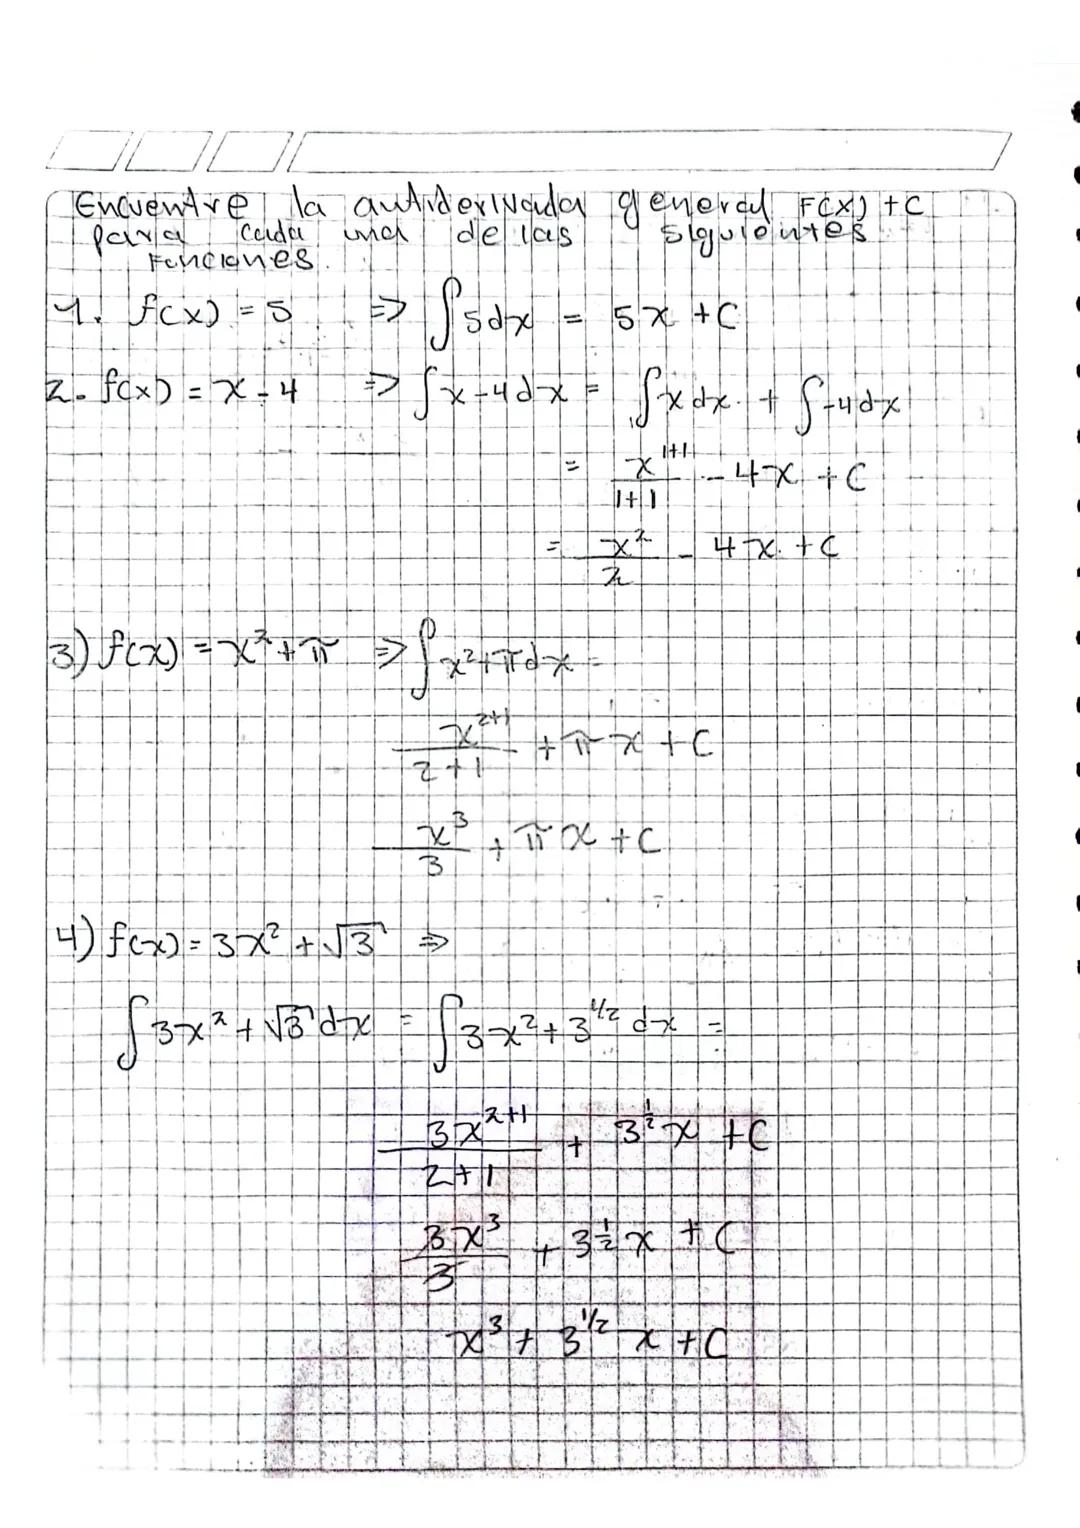 Encuentre la antiderivada general F(x) + C
para cada una de las siguientes
Funciones.
1. f(x) = 5 => ∫5dx = 5x + C
2. f(x) = x - 4 => ∫x-4dx = ∫x dx + ∫-4dx
= x^(1+1)/(1+1) - 4x + C
= x²/2 - 4x + C
3) f(x) = x² + π => ∫x²+πdx =
x^(2+1)/(2+1) + πx + C
x³/3 + πx + C
4) f(x) = 3x² + √3 =>
∫3x² + √3 dx = ∫3x² + 3^(1/2) dx =
3x^(2+1)/(2+1) + 3^(1/2) x + C
3x³/3 + 3^(1/2) x + C
x³ + 3^(1/2) x + C